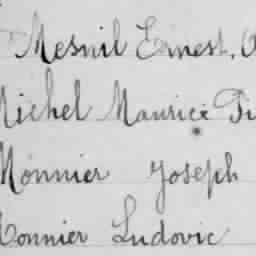 Mesnil Ernest,
Michel Maurice
Monnier Joseph
Monnier Ludovic